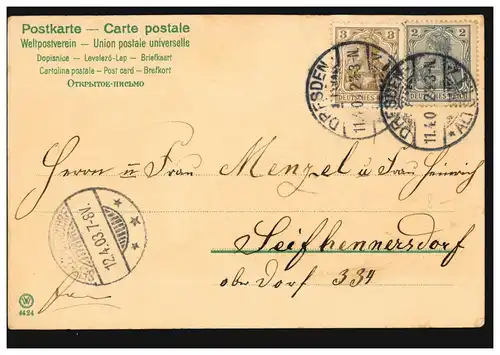 Postkarte – Carte postale
Weltpostverein – Union postale universelle
Dopisnice – Levelező-Lap – Briefkaart
Cartolina postale – Post card – Brefkort
Открытое-письмо
3 3
DEUTSCHES
2 2
DRESDEN ALTST.
11.4.03 2-3 N.
DRESDEN ALTST.
11.4.03 2-3 N.
Herrn u Frau Menzel u Frau Heinrich
Seifhennersdorf
ober Dorf 334
12.4.03.7-8V.
W
4424